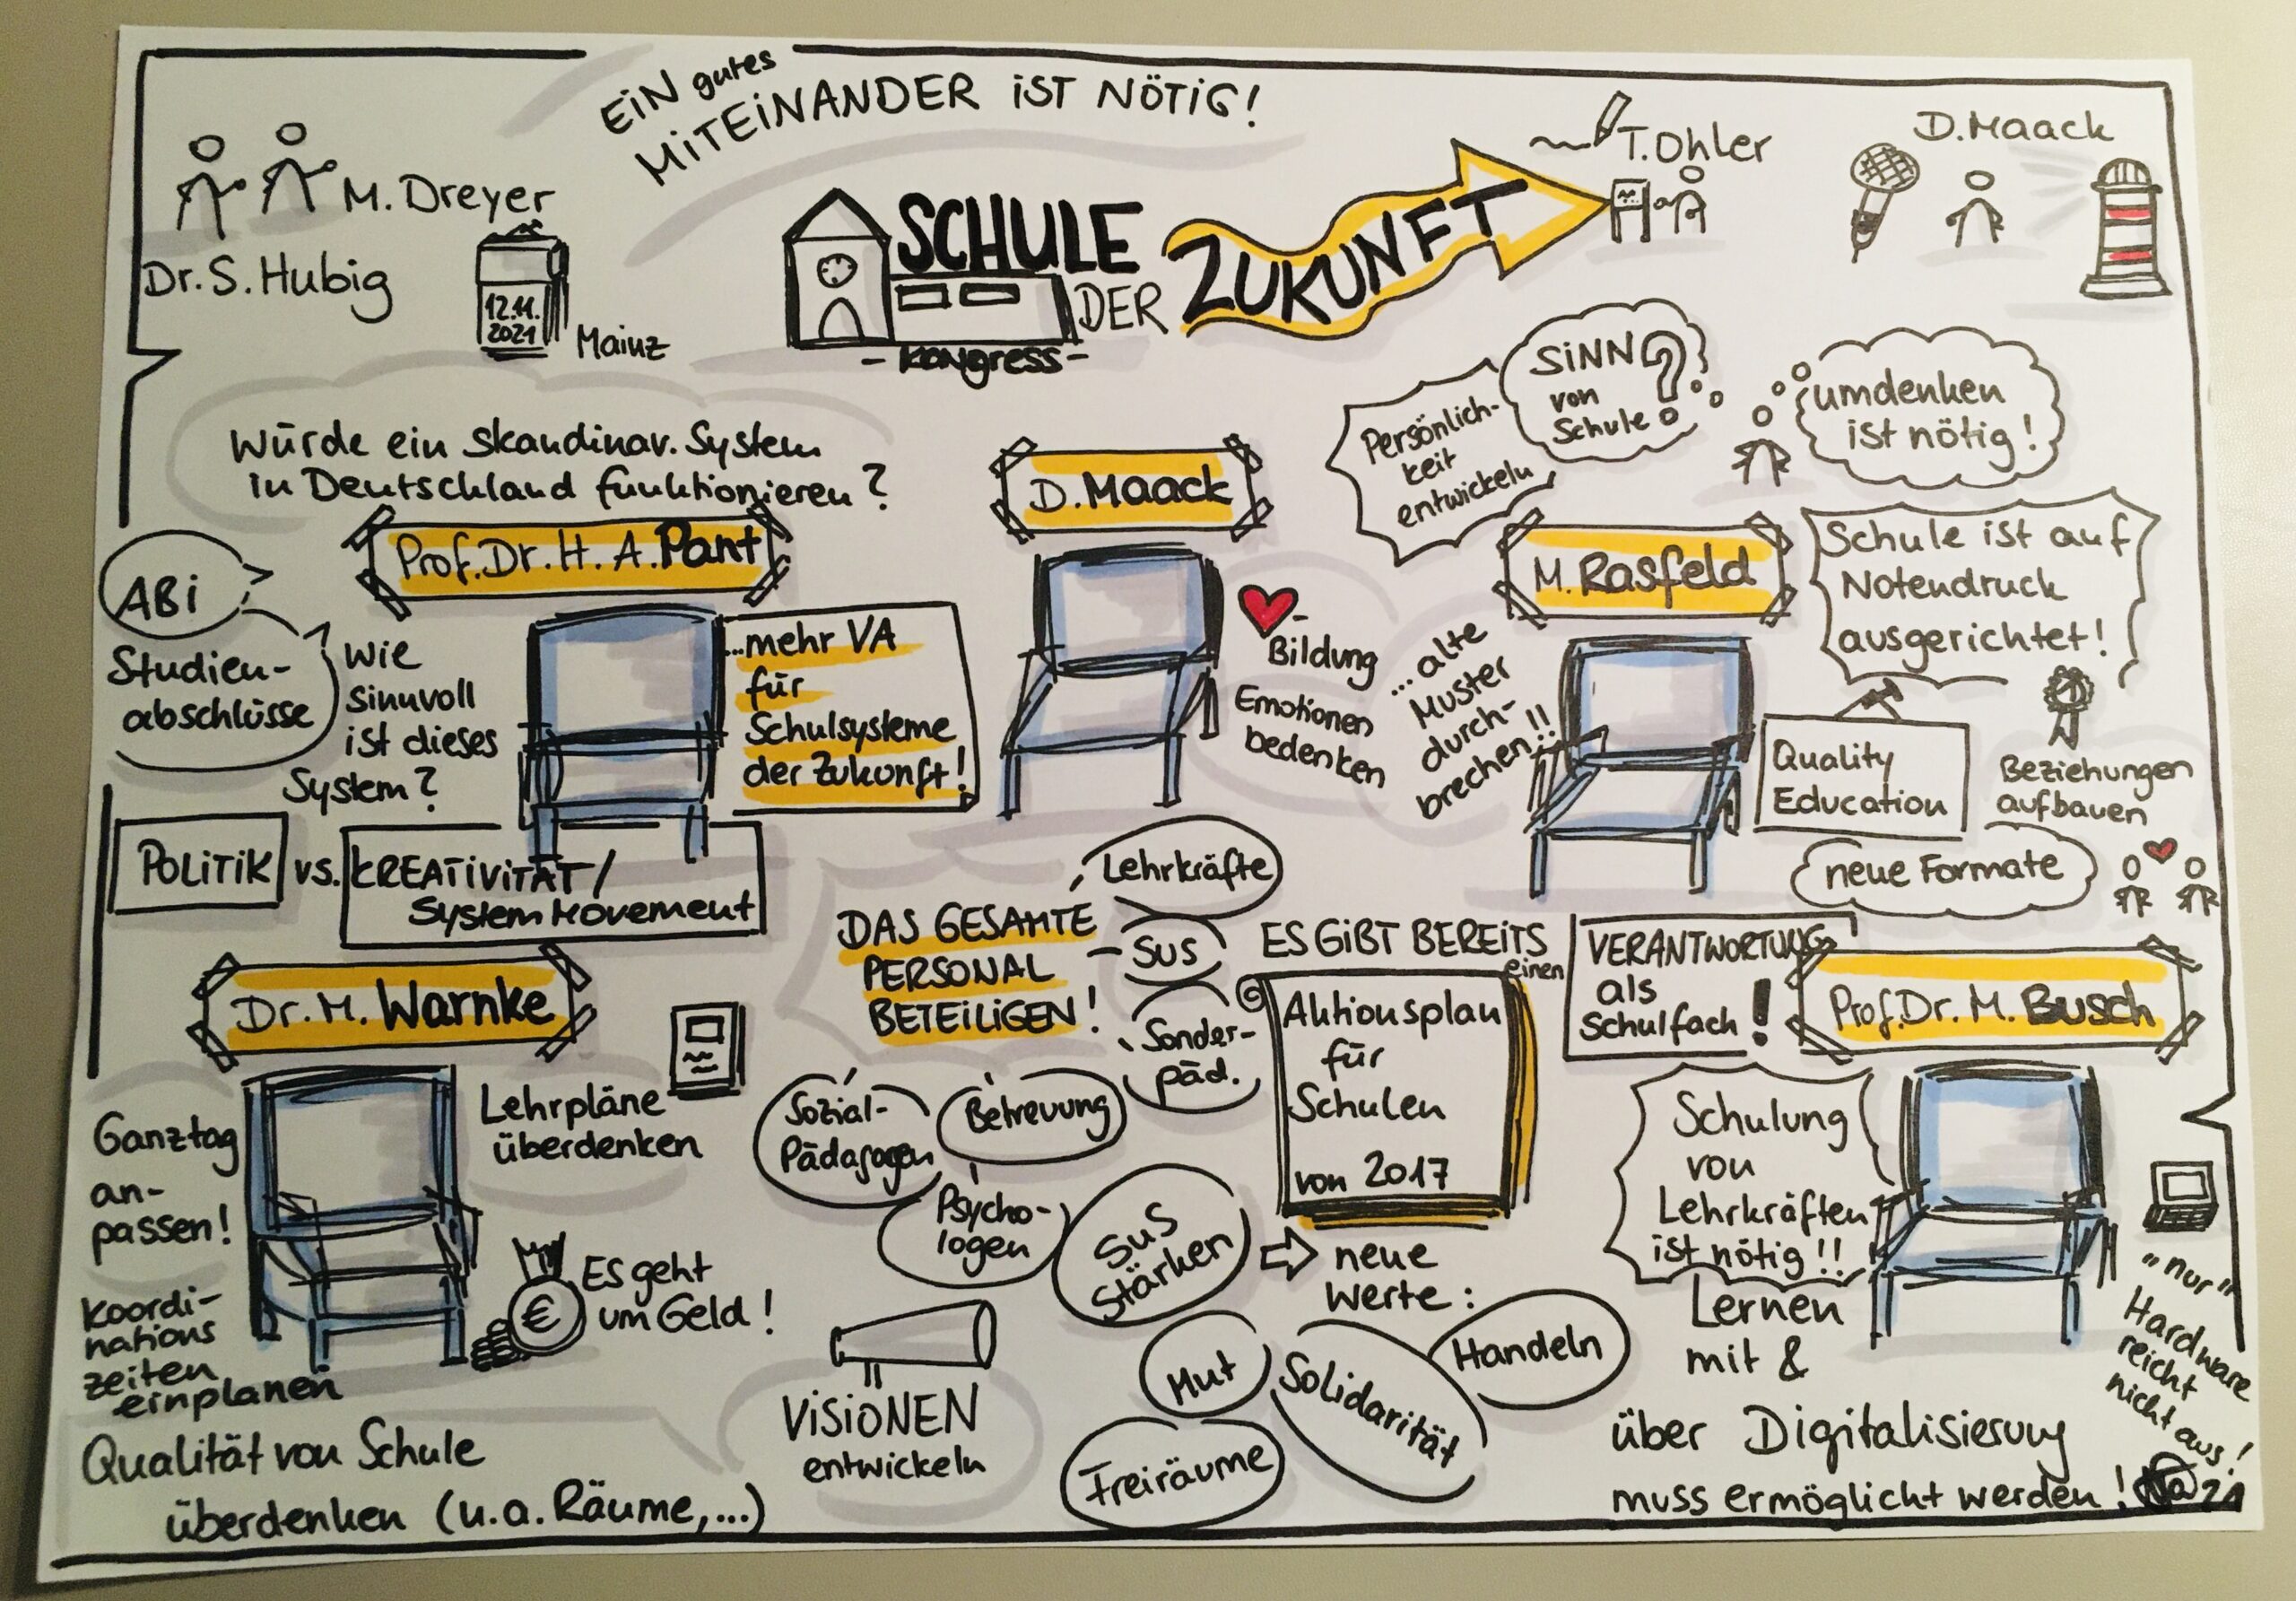 EiN gutes
MiTEiNANDER iST NÖTiG!
M. Dreyer
Dr. S. Hubig
12.11.
2021
Mainz
SCHULE
DER
ZUKUNFT
- Kongress -
T. Ohler
D. Maack
Würde ein skandinav. System
in Deutschland funktionieren?
Prof. Dr. H. A. Pant
ABi
Studien-
abschlüsse
Wie
sinnvoll
ist dieses
System?
...mehr VA
für
Schulsysteme
der Zukunft!
POLiTiK vs. KREATiViTÄT /
System Movement
D. Maack
Bildung
Emotionen
bedenken
Persönlich-
keit
entwickeln
SiNN?
von
Schule
umdenken
ist nötig!
M. Rasfeld
Schule ist auf
Notendruck
ausgerichtet!
1
... alte
Muster
durch-
brechen!!
Quality
Education
Beziehungen
aufbauen
neue Formate
Dr. M. Warnke
Ganztag
an-
passen!
Koordi-
nations
zeiten
einplanen
Lehrpläne
überdenken
€
Es geht
um Geld!
Qualität von Schule
überdenken (u.a. Räume,...)
DAS GESAMTE
PERSONAL
BETEiLiGEN!
Lehrkräfte
SuS
Sonder-
päd.
Betreuung
Sozial-
Pädagogen
Psycho-
logen
SuS
Stärken
ViSiONEN
entwickeln
ES GiBT BEREiTS
einen
Aktionsplan
für
Schulen
von 2017
neue
Werte:
Mut
Solidarität
Handeln
Freiräume
VERANTWORTUNG
als
Schulfach!
Prof. Dr. M. Busch
Schulung
von
Lehrkräften
ist nötig!!
Lernen
mit &
über Digitalisierung
muss ermöglicht werden!
"nur"
Hardware
reicht
nicht aus!
21